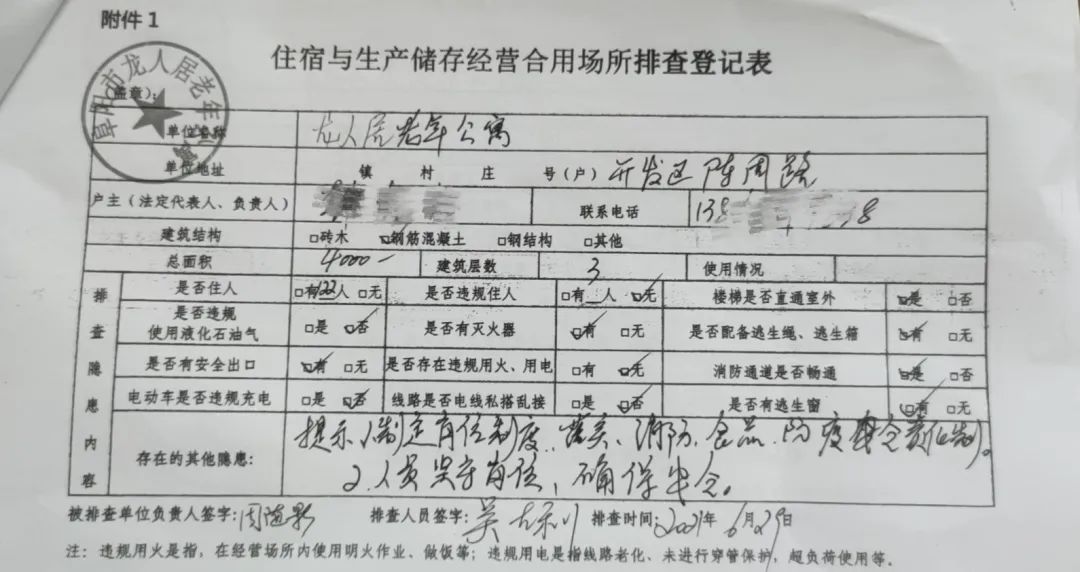 附件1
住宿与生产储存经营合用场所排查登记表
阜阳市龙人居老年公寓
(盖章):
单位名称 龙人居老年公寓
单位地址 镇 村 庄 号(户) 开发区陈周路
户主(法定代表人、负责人) 联系电话 138 8
建筑结构 □砖木 □钢筋混凝土 □钢结构 □其他
总面积 4000 建筑层数 3 使用情况
排查隐患内容
是否住人 □有122人 □无 是否违规住人 □有 人 □无 楼梯是否直通室外 □是 □否
是否违规
使用液化石油气 □是 □否 是否有灭火器 □有 □无 是否配备逃生绳、逃生箱 □有 □无
是否有安全出口 □有 □无 是否存在违规用火、用电 □有 □无 消防通道是否畅通 □是 □否
电动车是否违规充电 □是 □否 线路是否电线私搭乱接 □是 □否 是否有逃生窗 □有 □无
存在的其他隐患: 提示:1制定岗位制度,落实、消防、食品、防疫安全责任制。
2.人员坚守岗位,确保安全。
被排查单位负责人签字: 排查人员签字:吴 排查时间:2021年6月29日
注:违规用火是指,在经营场所内使用明火作业、做饭等;违规用电是指线路老化、未进行穿管保护,超负荷使用等。